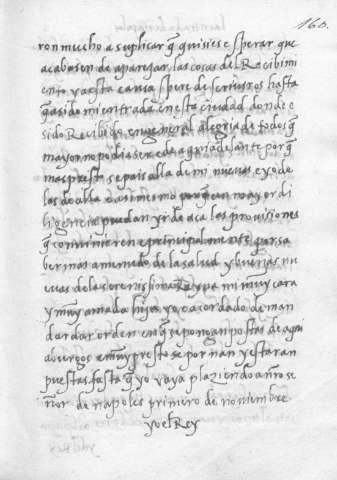 160.
ron mucho a suplicar q̃ quisiese sperar que
acabasen de aparejar las cosas del Recibimi
ento y a esta causa spere de screuiros hasta
q̃ a sido mi entrada en esta ciudad donde e
sido Recibido en general alegria de todos q̃
mayor no podia ser de aqui adelante por q̃
mas presto sepais alla de mi nueuas e yo de
las de alla e asimesmo porque con mayor di
ligencia puedan yr de aca las prouisiones
q̃ conuinieren e principalmente por sa
ber mas a menudo de la salud y buenas nu
euas de la serenissima Reyna mi muy cara
y muy amada hija yo e acordado de man
dar dar orden en q̃ se pongan postas de aqui
a burgos e muy presto se pornan y estaran
puestas fasta q̃ yo vaya plaziendo a nro se
ñor de napoles primero de nouiembre
yo el Rey